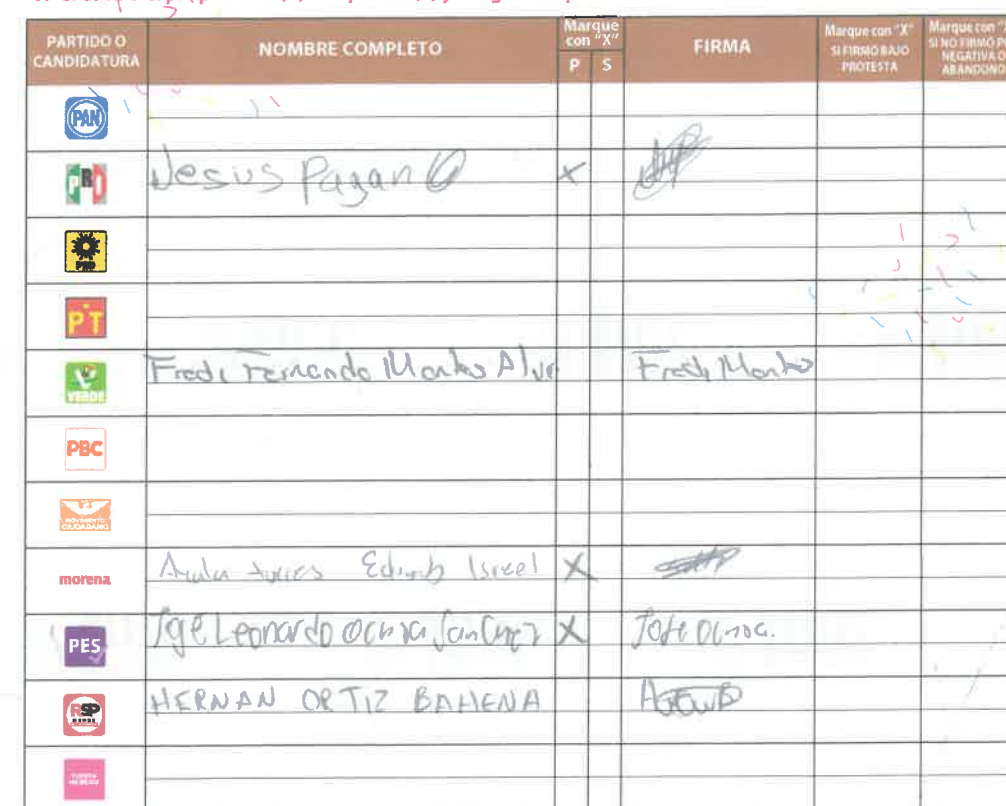 PARTIDO O CANDIDATURA NOMBRE COMPLETO Marque con "X" P S FIRMA Marque con "X" SI FIRMÓ BAJO PROTESTA Marque con "X" SI NO FIRMÓ NEGATIVA ABANDONO
PAN
PRI Jesus Pagan X
PRD
PT
VERDE Fredi Fernando Montes Fredi Montes
PBC
MOVIMIENTO CIUDADANO
morena Israel X
PES Jose Leonardo Ochoa Sanchez X Jose Ochoa.
RSP HERNAN ORTIZ BAHENA